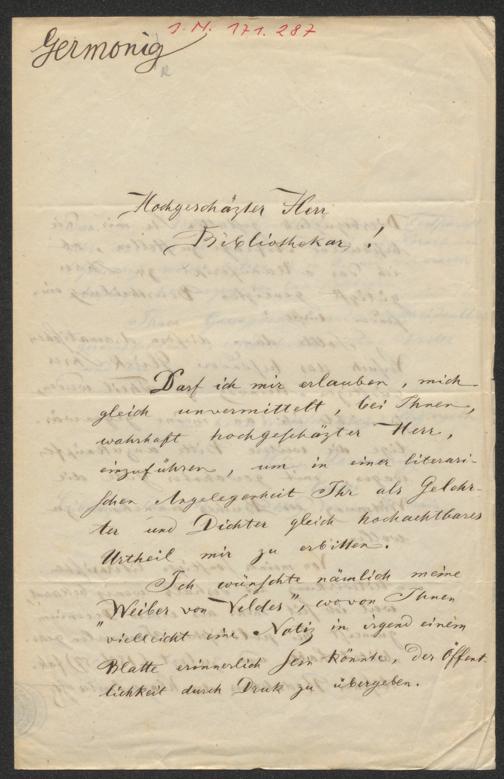 J. N. 171.287
Germonig
Hochgeschäzter Herr
Bibliothekar!
Darf ich mir erlauben, mich
gleich unvermittelt, bei Ihnen,
wahrhaft hochgeschäzter Herr,
einzuführen, um in einer literari-
schen Angelegenheit Ihr als Gelehr-
ter und Dichter gleich hochachtbares
Urtheil mir zu erbitten.
Ich wünschte nämlich meine
"Weiber von Veldes", wovon Ihnen
vielleicht eine Notiz in irgend einem
Blatte erinnerlich sein könnte, der Öffent-
lichkeit durch Druck zu übergeben.